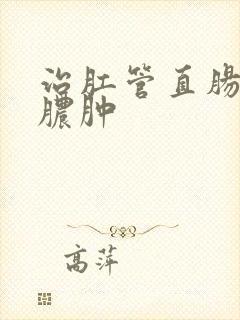 治肛管直肠
脓肿
高萍